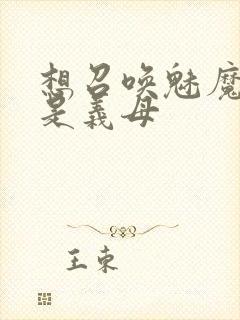 想召唤魅魔
是義母
王束